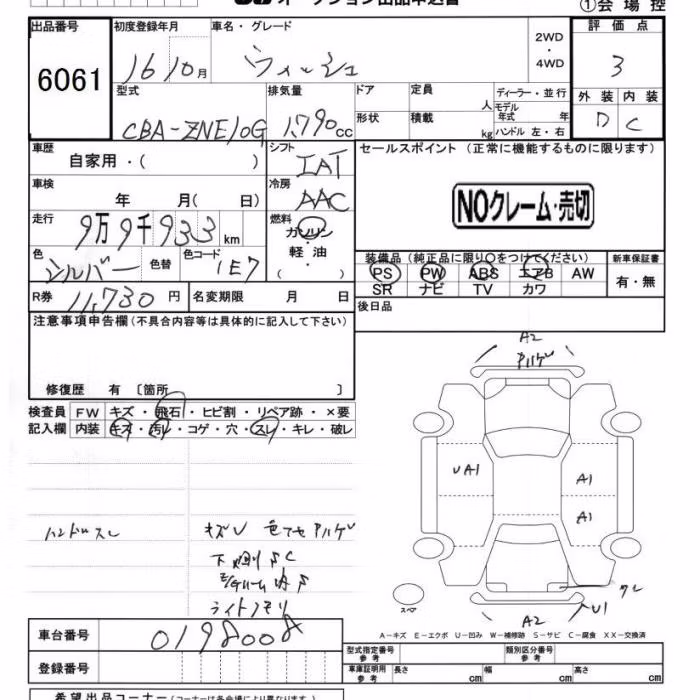 オークション出品申込書 ①会場控
出品番号 初度登録年月 車名・グレード 2WD ・ 4WD 評価点
6061 16 10月 ウィッシュ 3
型式 排気量 ドア 定員 人 ディーラー・並行 外装 内装
CBA-ZNE10G 1,790cc 形状 積載 kg モデル年式 年 ハンドル 左・右 D C
車歴 自家用・( ) シフト IAT セールスポイント(正常に機能するものに限ります)
車検 年 月( 日) 冷房 AAC NOクレーム・売切
走行 9万9千933km 燃料 ガソリン・軽油 ( )
色 シルバー 色替 色コード 1E7 装備品(純正品に限り○をつけてください) 新車保証書
PS PW ABS エアB AW 有・無
SR ナビ TV カワ
R券 11,730円 名変期限 月 日 後日品
注意事項申告欄(不具合内容等は具体的に記入して下さい)
A2
修復歴 有 〔箇所 〕
検査員 FW キズ・飛石・ヒビ割・リペア跡・×要
記入欄 内装 キズ・汚レ・コゲ・穴・スレ・キレ・破レ
UA1 A1
A1
ハンドルスレ キズU 色アセ ハゲ
A2 U1
車台番号 0198008
A-キズ E-エクボ U-凹み W-補修跡 S-サビ C-腐食 XX-交換済
型式指定番号 参考 類別区分番号 参考
登録番号 車庫証明用 参考 長さ cm 幅 cm 高さ cm
希望出品コーナー(コーナーは各会場により異なります)